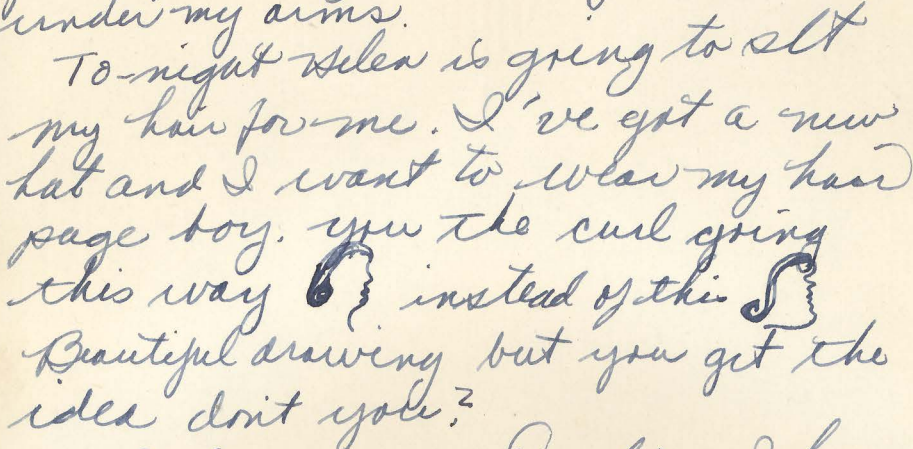 under my arms.
To-night Helen is going to set
my hair for me. I've got a new
hat and I want to wear my hair
page boy. you the curl going
this way instead of this
Beautiful drawing but you get the
idea don't you?